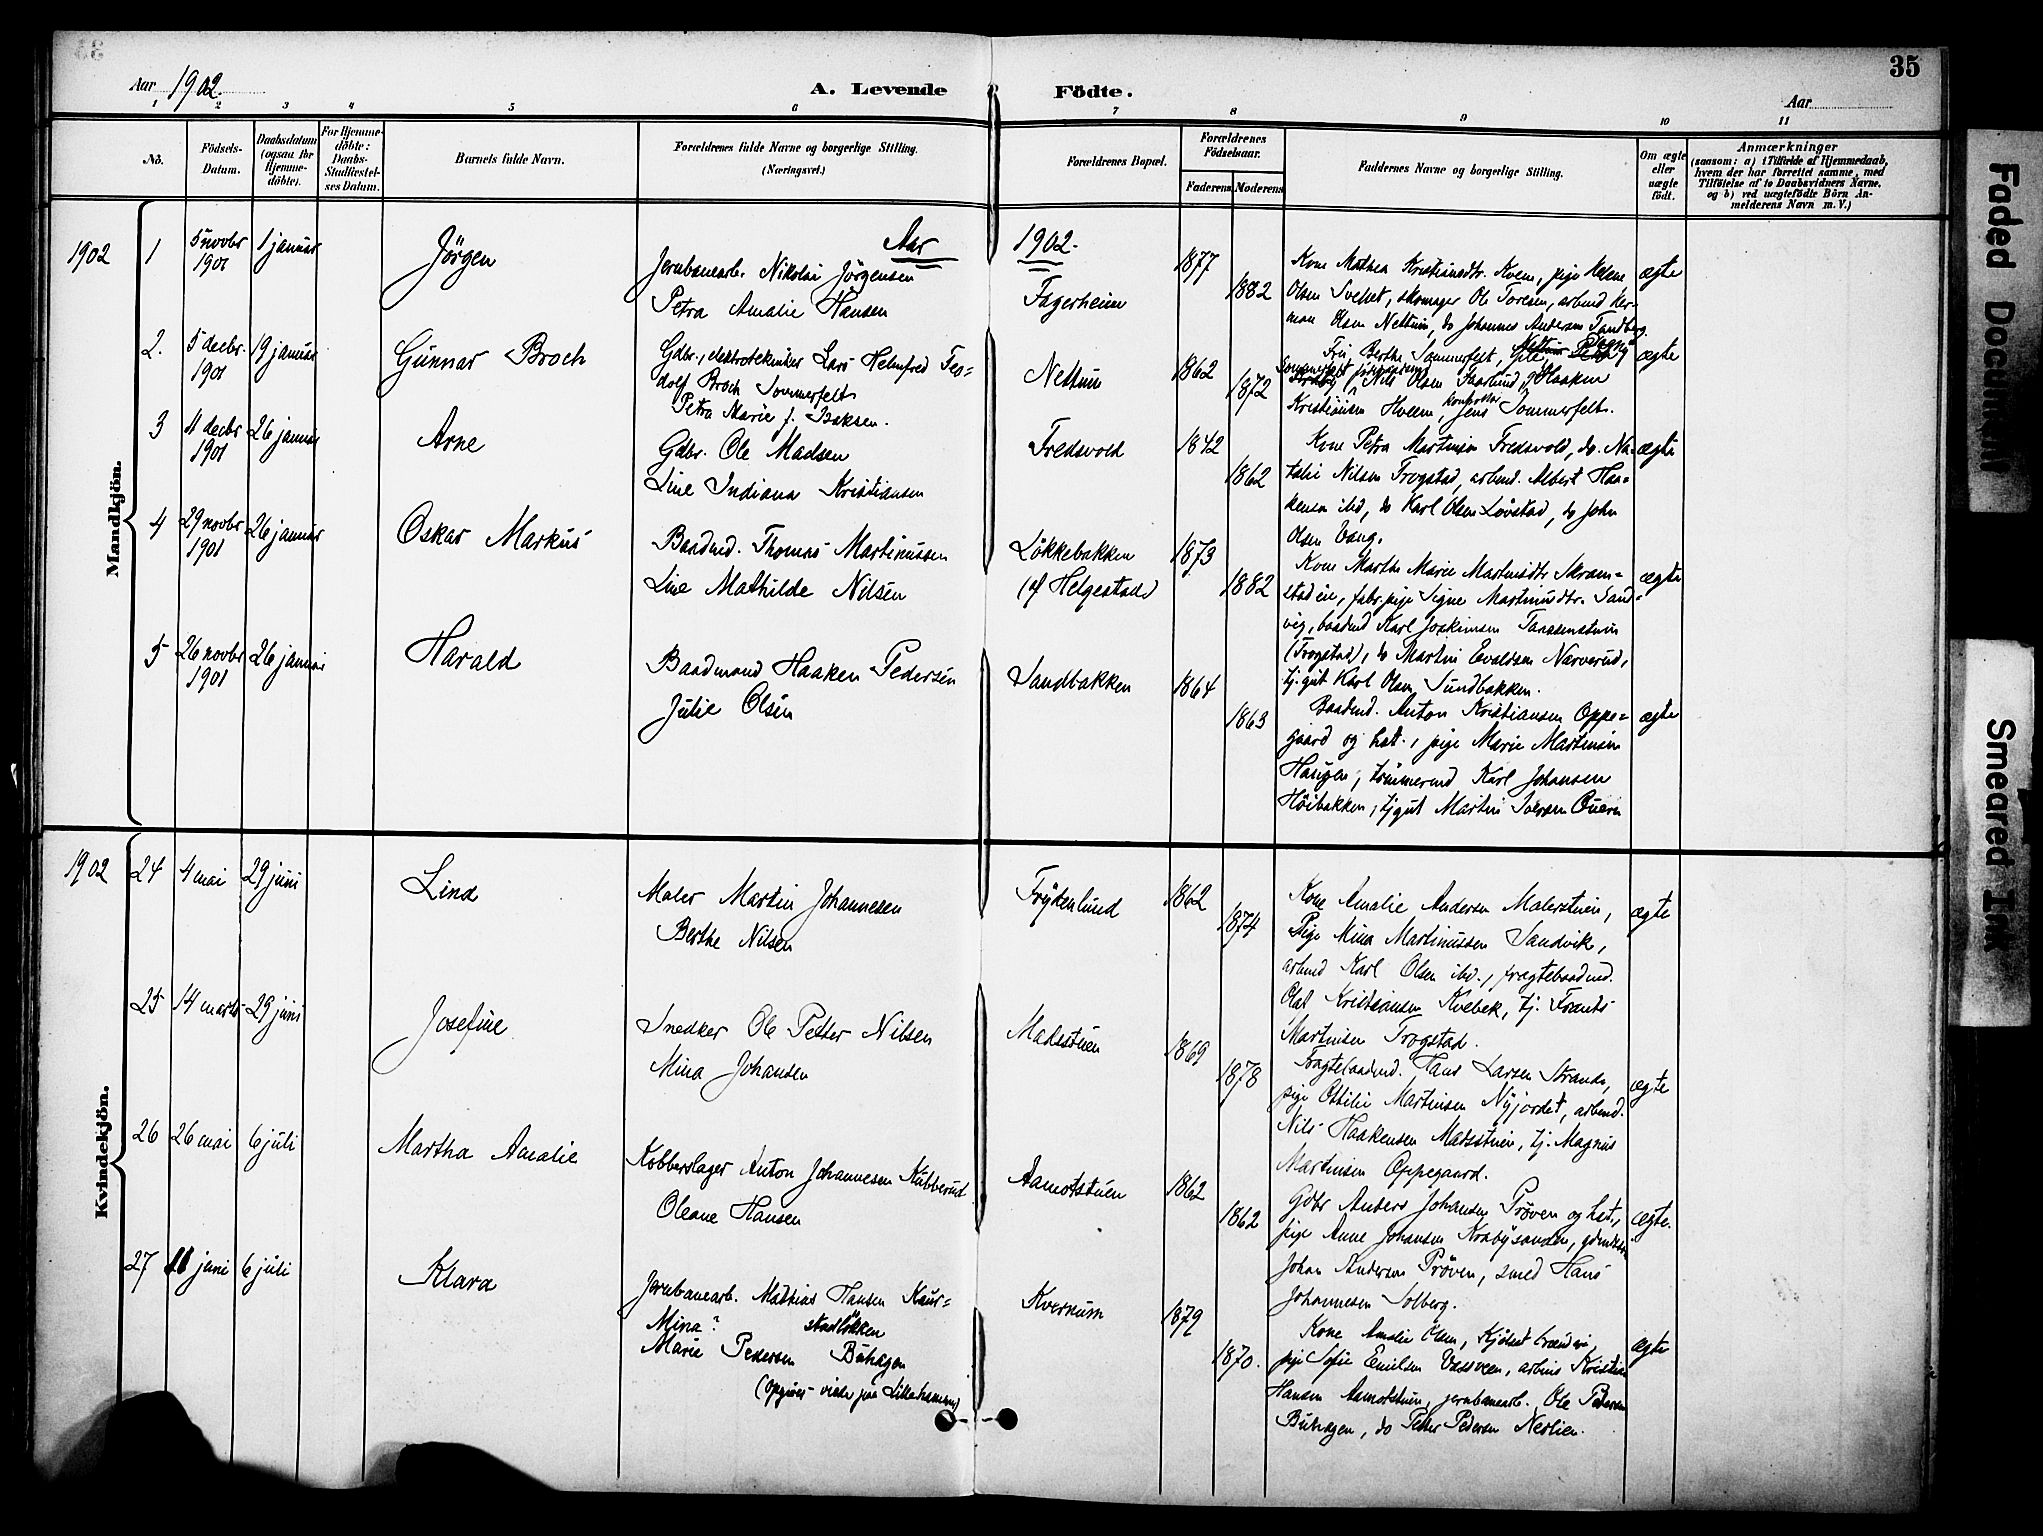 35
Aar 1902.
A. Levende Födte.
Aar
1 2 3 4 5 6 7 8 9 10 11
No.
Födsels-
Datum.
Daabsdatum
(ogsaa for
Hjemme-
döbte).
For Hjemme-
döbte:
Daabs-
Stadfæstel-
ses Datum.
Barnets fulde Navn.
Forældrenes fulde Navne og borgerlige Stilling.
(Næringsvei.)
Forældrenes Bopæl.
Forældrenes
Födselsaar.
Faderens Moderens
Faddernes Navne og borgerlige Stilling.
Om ægte
eller
uægte
födt.
Anmærkninger
(saasom: a) i Tilfælde af Hjemmedaab,
hvem der har forrettet samme, med
Tilföielse af to Daabsvidners Navne,
og b) ved uægtefödte Börn An-
melderens Navn m. V.)
Mandkjön.
Aar 1902.
1902 1 5 novbr 1901 1 januar
Jörgen
Jernbanearb. Nikolai Jörgensen
Petra Amalie Hansen
Fagerheim
1877
1882
Kone Mathea Kristiansdtr. Kvem, pige Helene
Olsen Svehet, skomager Ole Toresen, arbmd Her-
man Olsen Nettum, do Johannes Andersen Tandberg.
ægte
2. 5 decbr. 1901 19 januar
Gunnar Broch
Gdbr., elektrotekniker Lars Helmfred Teo-
dolf Broch Sommerfelt
Petra Marie f. Isaksen.
Nettum
1862
1872
Fru Berthe Sommerfelt,
Nils Olsen Faarlund, Haaken
Kristiansen Hveem, Jens Sommerfelt.
ægte
3 11 decbr 1901 26 januar
Arne
Gdbr. Ole Madsen
Line Indiana Kristiansen
Fredsvold
1842
1862
Kone Petra Martinsen Fredsvold, do. Na-
talie Nilsen Trogstad, arbmd. Albert Haa-
kensen ibd, do Karl Olsen Lövstad, do John
Olsen Vang.
ægte
4 29 novbr 1901 26 januar
Oskar Markus
Baadmd. Thomas Martinussen
Line Mathilde Nilsen
Lökkebakken
(u/ Helgestad)
1873
1882
Kone Marthe Marie Martinsdtr Skram-
stadeie, fabr.pige Signe Martinusdtr. Sand-
vig, baadmd Karl Joakimsen
(Trogstad), do Martin Evaldsen Narverud,
tj. gut Karl Olsen Sundbakken.
ægte
5 26 novbr 1901 26 januar
Harald
Baadmand Haaken Pedersen
Julie Olsen
Sandbakken
1864
1863
Baadmd. Anton Kristiansen Oppe-
gaard og hst., pige Marie Martinsen
Haugen, tömmermd Karl Johansen
Höibakken, tjgut Martin Iversen
ægte
Kvindekjön.
1902 24 4 mai 29 juni
Lina
Maler Martin Johannesen
Berthe Nilsen
Frydenlund
1862
1874
Kone Amalie Andersen Malerstuen,
Pige Mina Martinussen Sandvik,
arbmd Karl Olsen ibd., fragtebaadmd.
Olaf Kristiansen Kvebek, tj. Frants
Martinsen Trogstad.
ægte
25 14 marts 29 juni
Josefine
Snedker Ole Petter Nilsen
Mina Johansen
Madsstuen
1869
1878
Fragtebaadmd. Hans Larsen Strande,
pige Ottilie Martinsen Nyjordet, arbmd.
Nils Haakensen Madsstuen, tj. Magnus
Martinsen Oppegaard.
ægte
26 26 mai 6 juli
Martha Amalie
Kobberslager Anton Johannesen Kubberud
Oleane Hansen
Aamotstuen
1862
1862
Gdbr Anders Johansen Pröven og hst.,
pige Anne Johansen Krabysanden,
Johan Andersen Pröven, smed Hans
Johannesen Solberg.
ægte.
27 11 juni 6 juli
Klara
Jernbanearb. Mathias Hansen Kaur-
stadlökken
Mina?
Marie Pedersen Buhagen
(opgives viede paa Lillehammer)
Kvernum
1879
1870.
Kone Amalie Olsen,
pige Sofie Emilsen Vassveen, arbmd Kristian
Hansen Aamotstuen, jernbanearb. Ole Pedersen
Buhagen, do Petter Pedersen Neslien.
ægte
Faded Document
Smeared Ink